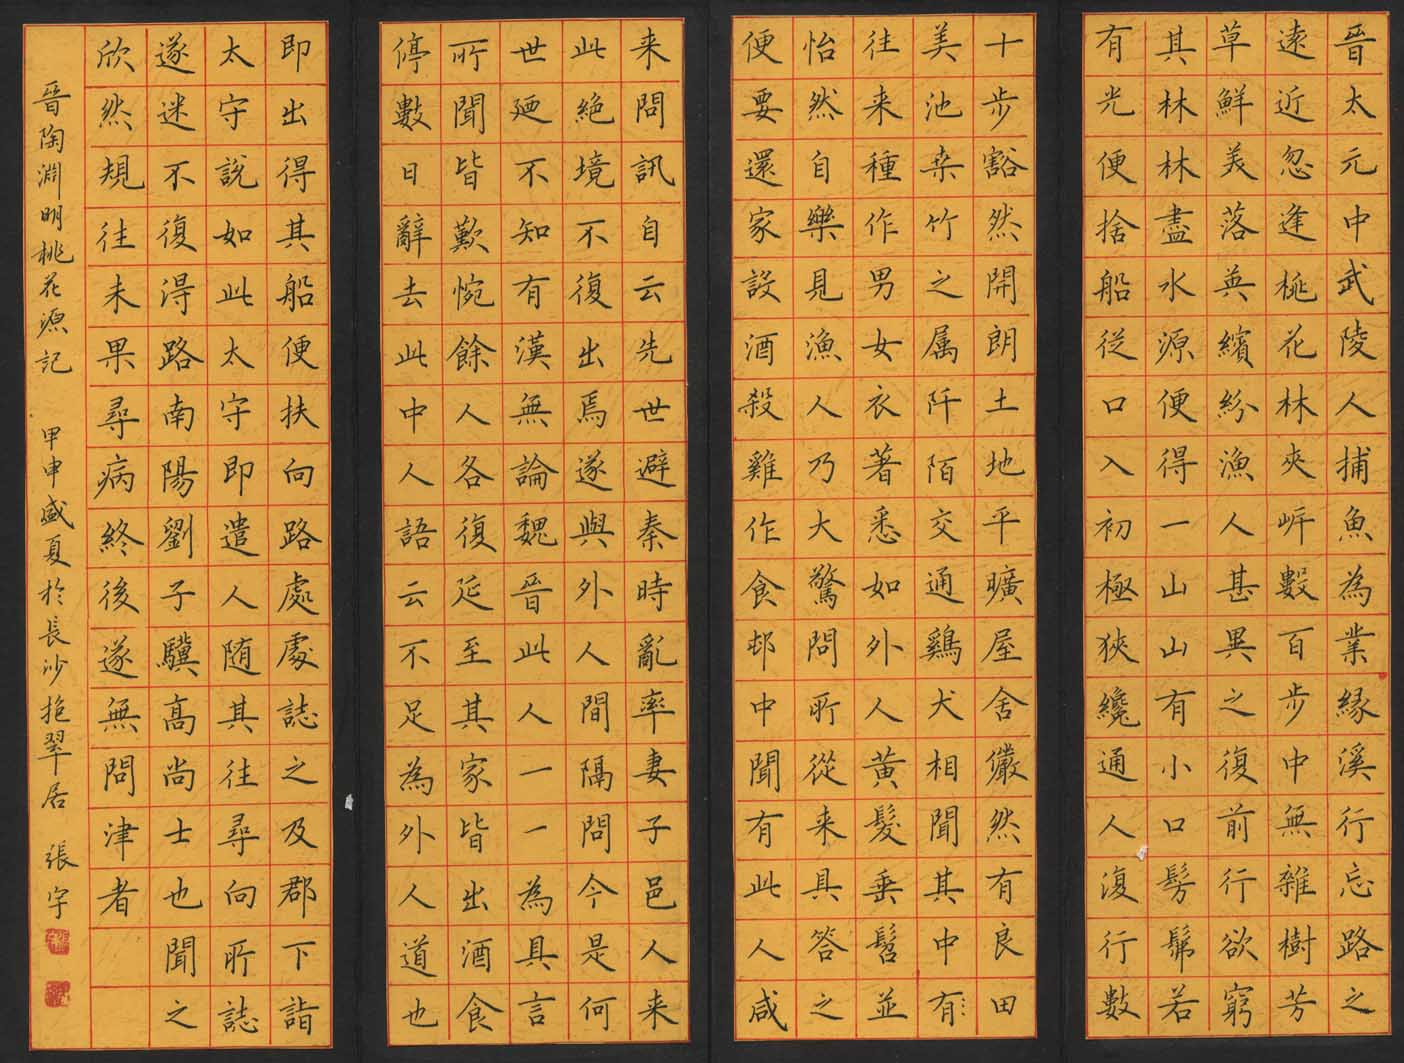 晉太元中武陵人捕魚為業緣溪行忘路之
遠近忽逢桃花林夾岸數百步中無雜樹芳
草鮮美落英繽紛漁人甚異之復前行欲窮
其林林盡水源便得一山山有小口髣髴若
有光便捨船從口入初極狹纔通人復行數
十步豁然開朗土地平曠屋舍儼然有良田
美池桑竹之属阡陌交通鷄犬相聞其中有
往来種作男女衣著悉如外人黃髮垂髫並
怡然自樂見漁人乃大驚問所從来具答之
便要還家設酒殺雞作食邨中聞有此人咸
来問訊自云先世避秦時亂率妻子邑人来
此絕境不復出焉遂與外人間隔問今是何
世廼不知有漢無論魏晉此人一一為具言
所聞皆歎惋餘人各復延至其家皆出酒食
停數日辭去此中人語云不足為外人道也
即出得其船便扶向路處處誌之及郡下詣
太守說如此太守即遣人随其往尋向所誌
遂迷不復得路南陽劉子驥高尚士也聞之
欣然規往未果尋病終後遂無問津者
晉陶淵明桃花源記 甲申盛夏於長沙挹翠居 張宇